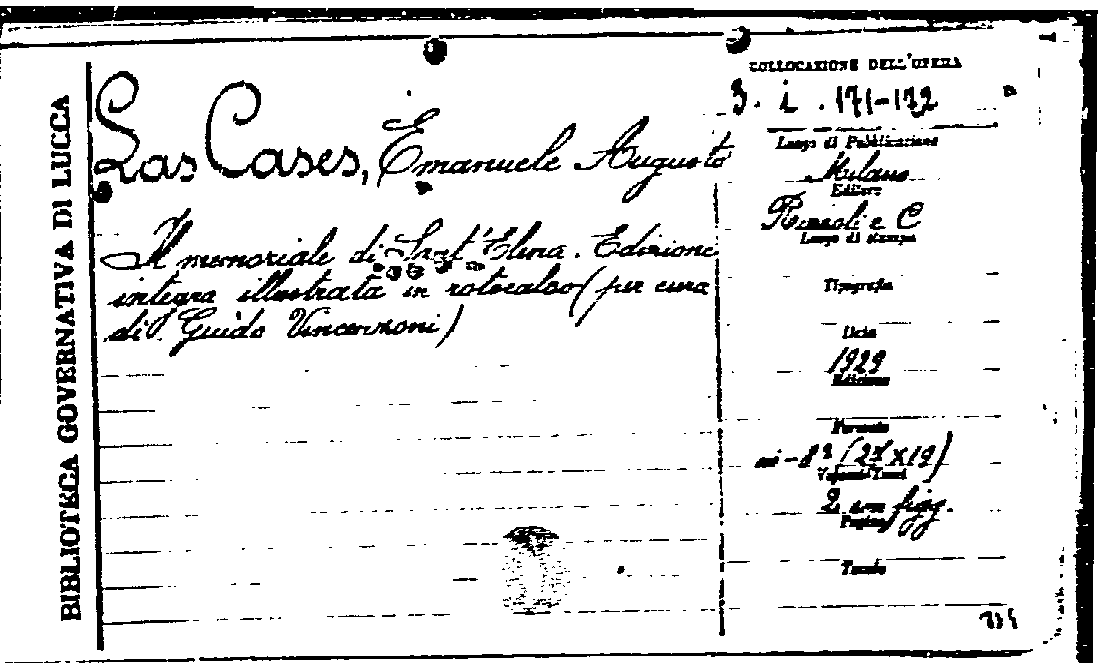 BIBLIOTECA GOVERNATIVA DI LUCCA
Las Cases, Emanuele Augusto
Il memoriale di Sant'Elena. Edizione
integra illustrata in rotocalco (per cura
di Guido Vincenzoni)
COLLOCAZIONE DELL'OPERA
3. i. 171-172
Luogo di Pubblicazione
Milano
Editore
Rizzoli e C
Luogo di stampa
Tipografia
Data
1929
Edizione
Formato
in-8º (27x19)
Volumi-Tomi
2 con figg.
Pagine